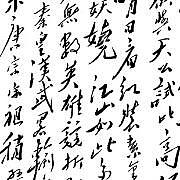 與天公試比高
日看红裝素裹
妖嬈江山如此多
無數英雄競折
秦皇漢武略輸
唐宗宋祖稍